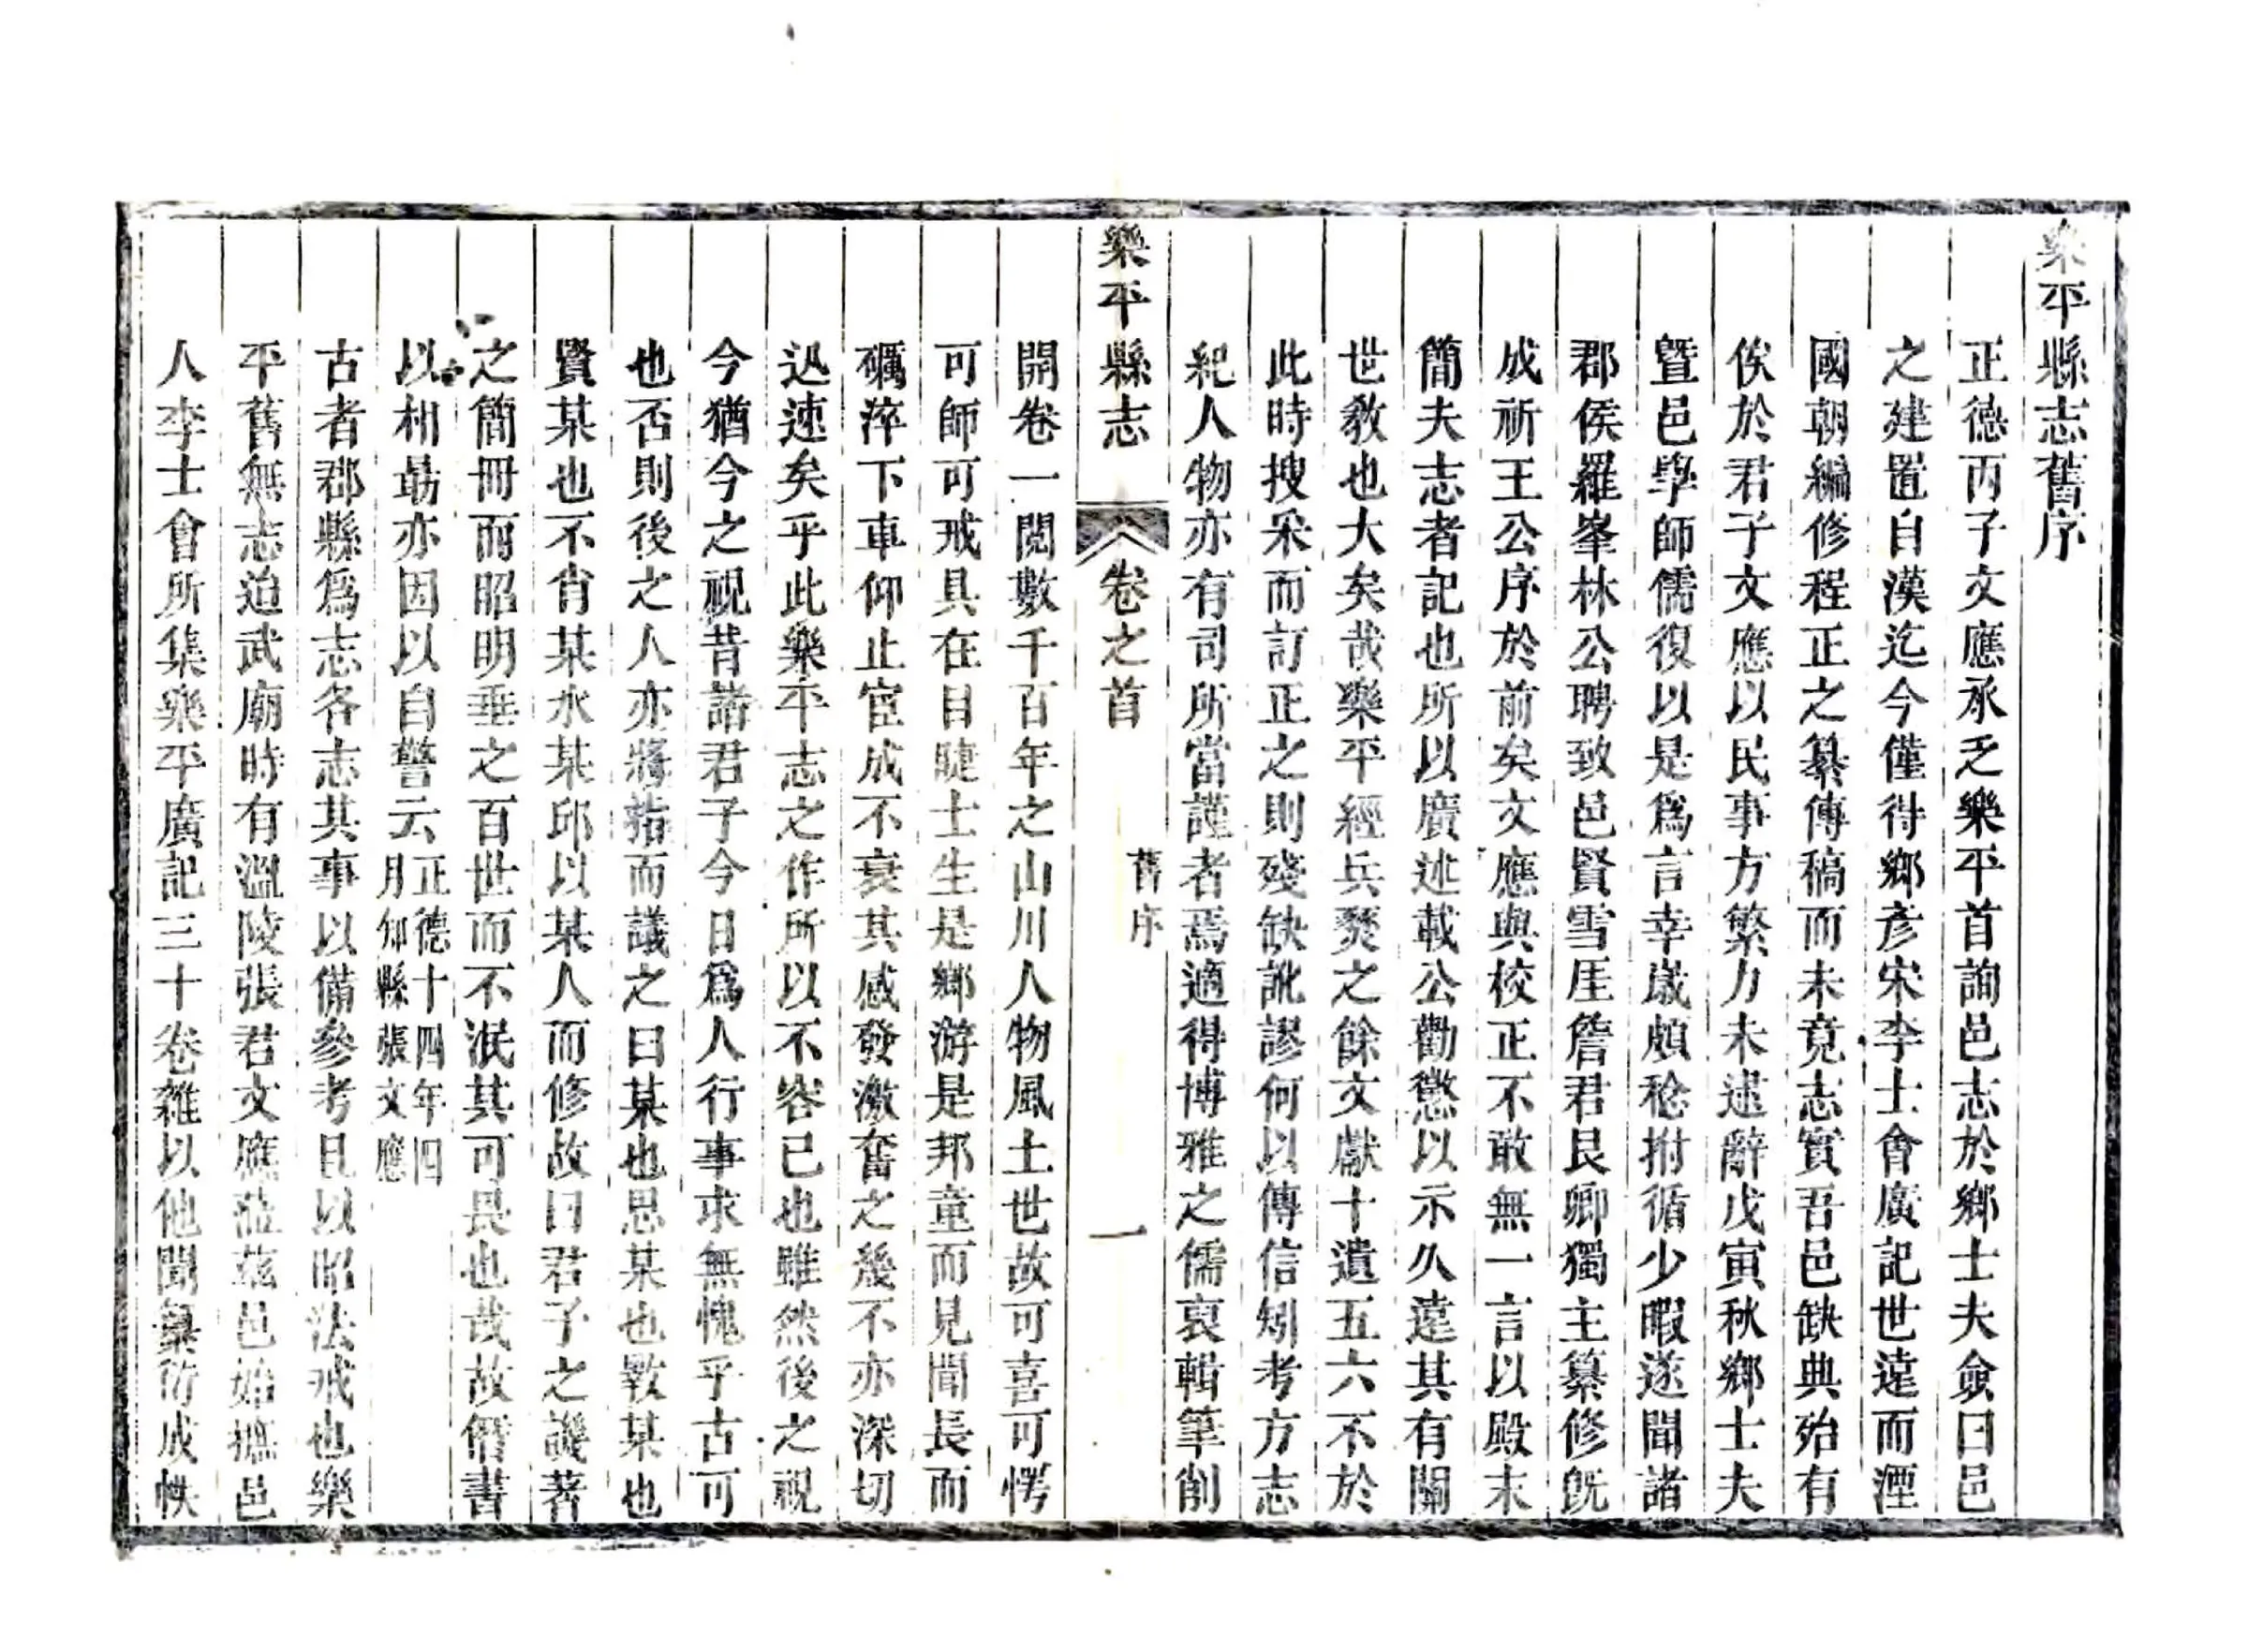 樂平縣志舊序
正德丙子文應承乏樂平首詢邑志於鄉士夫僉曰邑
之建置自漢迄今僅得鄉彥宋李士會廣記世遠而湮
國朝編修程正之纂傳稿而未竟志實吾邑缺典殆有
俟於君子文應以民事方繁力未逮辭戊寅秋鄉士夫
暨邑學師儒復以是爲言幸歲頗稔拊循少暇遂聞諸
郡侯羅峯林公聘致邑賢雪厓詹君艮卿獨主纂修旣
成祈王公序於前矣文應與校正不敢無一言以殿末
簡夫志者記也所以廣述載公勸懲以示久遠其有關
世敎也大矣哉樂平經兵燹之餘文獻十遺五六不於
此時搜采而訂正之則殘缺訛謬何以傳信矧考方志
紀人物亦有司所當謹者焉適得博雅之儒裒輯筆削
樂平縣志 卷之首 舊序 一
開卷一閱數千百年之山川人物風土世故可喜可愕
可師可戒具在目睫士生是鄉游是邦童而見聞長而
礪淬下車仰止宦成不衰其感發激奮之幾不亦深切
迅速矣乎此樂平志之作所以不容已也雖然後之視
今猶今之視昔諸君子今日爲人行事求無愧乎古可
也否則後之人亦將指而議之曰某也思某也斁某也
賢某也不肖某水某邱以某人而修故曰君子之譏著
之簡冊而昭明垂之百世而不泯其可畏也哉故僭書
以相勗亦因以自警云正德十四年四
月知縣張文應
古者郡縣爲志各志其事以備參考且以昭法戒也樂
平舊無志迨武廟時有溫陵張君文應蒞茲邑始摭邑
人李士會所集樂平廣記三十卷雜以他聞彙衍成帙